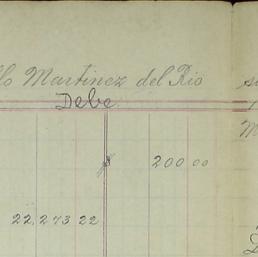 llo Martinez del Rio
Debe
200 00
22,273 22